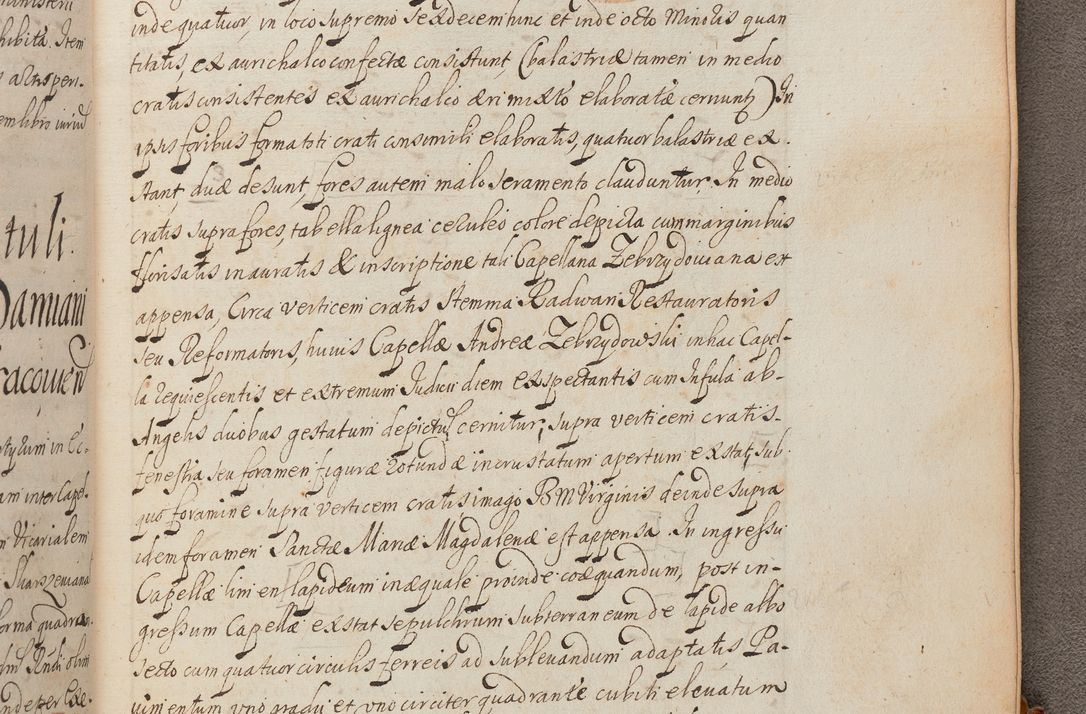 inde quatuor, in loco supremo sexdecem hinc et inde octo Minoris quan
titatis, ex aurichalco confectæ consistunt, (balastriæ tamen in medio
cratis consistentes ex aurichalco æri mixto elaboratæ cernuntur) In
ipsis foribus formæ toti crati consimili elaboratis, quatuor balastriæ ex.
stant, duæ desunt, fores autem malo seramento clauduntur. In medio
cratis supra fores, tabella lignea ceruleo colore depicta cum marginibus
florisatis inauratis & inscriptione tali Capellana Zebrzydoviana est
appensa, Circa verticem cratis stemma Radwan Restauratoris
seu Reformatoris, huius Capellæ Andreæ Zebrzydowski in hac Capel-
la requiescentis et extremum Iudicii diem expectantis cum Infula ab-
Angelis duobus gestatum depictum cernitur, supra verticem cratis-
fenestra seu foramen figuræ rotundæ incrustatum apertum extat, sub
quo foramine supra verticem cratis imago BM Virginis deinde supra
idem foramen Sanctæ Mariæ Magdalenæ est appensa. In ingressu
Capellæ limen lapideum inæquale proinde coæquandum, post in-
gressum Capellæ exstat sepulchrum subterraneum de lapide albo
secto cum quatuor circulis ferreis ad sublevandum adaptatis Pa-
vimentum uno gradu et uno circiter quadrante cubiti elevatum
ministerii
hibita. Item
altis peri.
em libro iurium
tuli.
Damiani
racovien
rtyrum in Ec.
am inter Capel.
n Vicarialem
Skarszeviana
orma quadran
olim
nde per Exe.